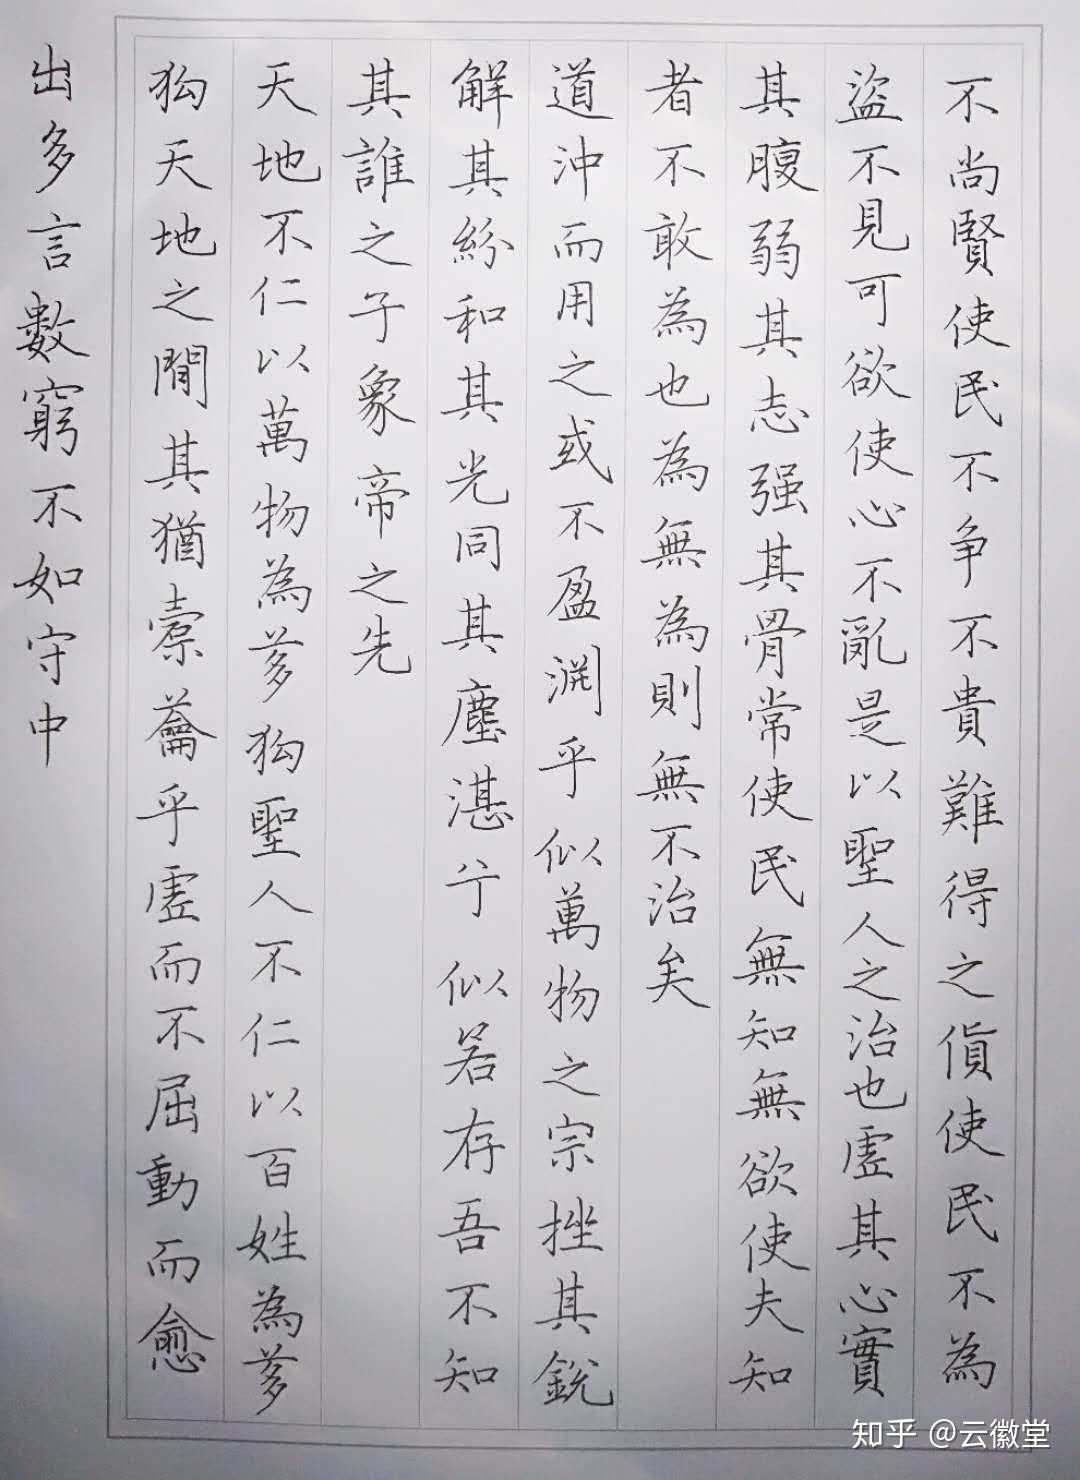 不尚賢使民不争不貴難得之貨使民不為
盜不見可欲使心不亂是以聖人之治也虛其心實
其腹弱其志强其骨常使民無知無欲使夫知
者不敢為也為無為則無不治矣
道沖而用之或不盈渊乎似萬物之宗挫其銳
解其紛和其光同其塵湛兮似若存吾不知
其誰之子象帝之先
天地不仁以萬物為芻狗聖人不仁以百姓為芻
狗天地之間其猶橐籥乎虛而不屈動而愈
出多言數窮不如守中
知乎 @云徽堂